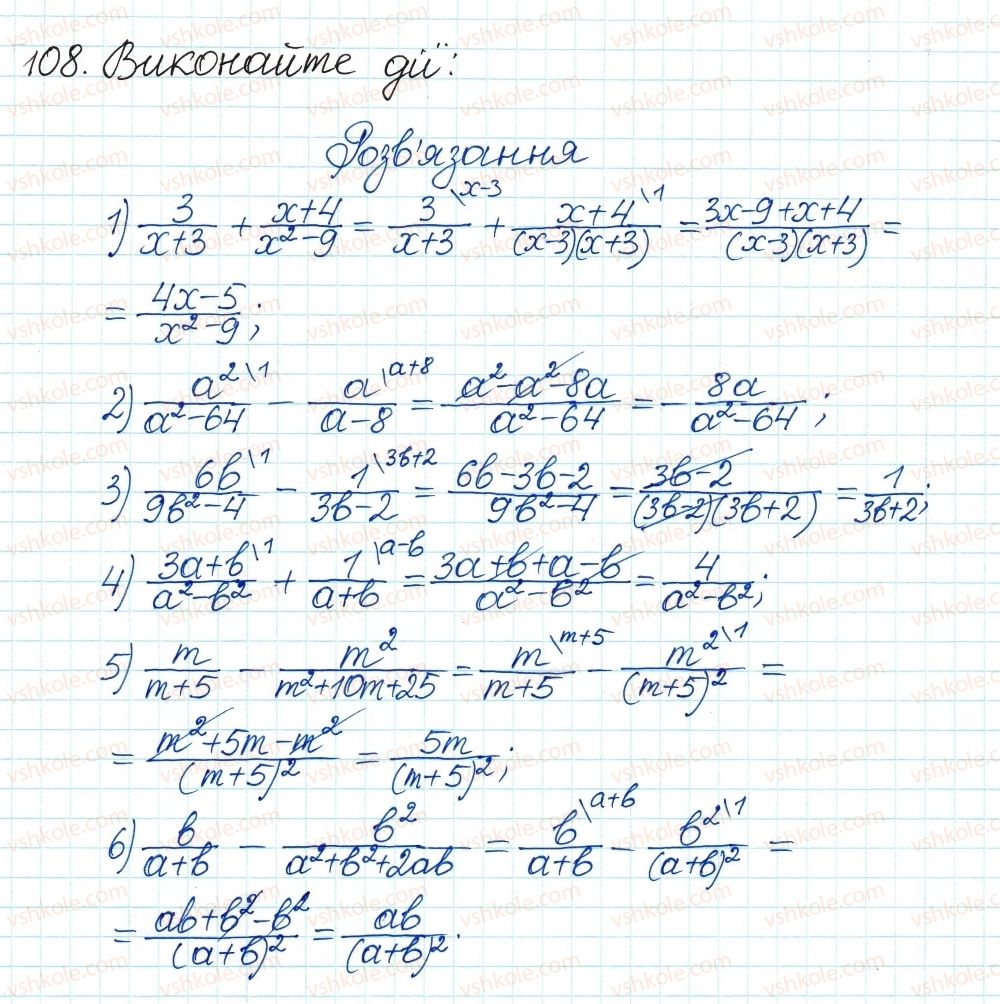 108. Виконайте дії:
Розв'язання
1) \frac{3}{x+3} + \frac{x+4}{x^2-9} = \frac{3}{x+3}^{\backslash x-3} + \frac{x+4}{(x-3)(x+3)}^{\backslash 1} = \frac{3x-9+x+4}{(x-3)(x+3)} =
= \frac{4x-5}{x^2-9};
2) \frac{a^2}{a^2-64}^{\backslash 1} - \frac{a}{a-8}^{\backslash a+8} = \frac{a^2-a^2-8a}{a^2-64} = -\frac{8a}{a^2-64};
3) \frac{6в}{9в^2-4}^{\backslash 1} - \frac{1}{3в-2}^{\backslash 3в+2} = \frac{6в-3в-2}{9в^2-4} = \frac{3в-2}{(3в-2)(3в+2)} = \frac{1}{3в+2};
4) \frac{3a+в}{a^2-в^2}^{\backslash 1} + \frac{1}{a+в}^{\backslash a-в} = \frac{3a+в+a-в}{a^2-в^2} = \frac{4}{a^2-в^2};
5) \frac{m}{m+5} - \frac{m^2}{m^2+10m+25} = \frac{m}{m+5}^{\backslash m+5} - \frac{m^2}{(m+5)^2}^{\backslash 1} =
= \frac{m^2+5m-m^2}{(m+5)^2} = \frac{5m}{(m+5)^2};
6) \frac{в}{a+в} - \frac{в^2}{a^2+в^2+2aв} = \frac{в}{a+в}^{\backslash a+в} - \frac{в^2}{(a+в)^2}^{\backslash 1} =
= \frac{aв+в^2-в^2}{(a+в)^2} = \frac{aв}{(a+в)^2}.